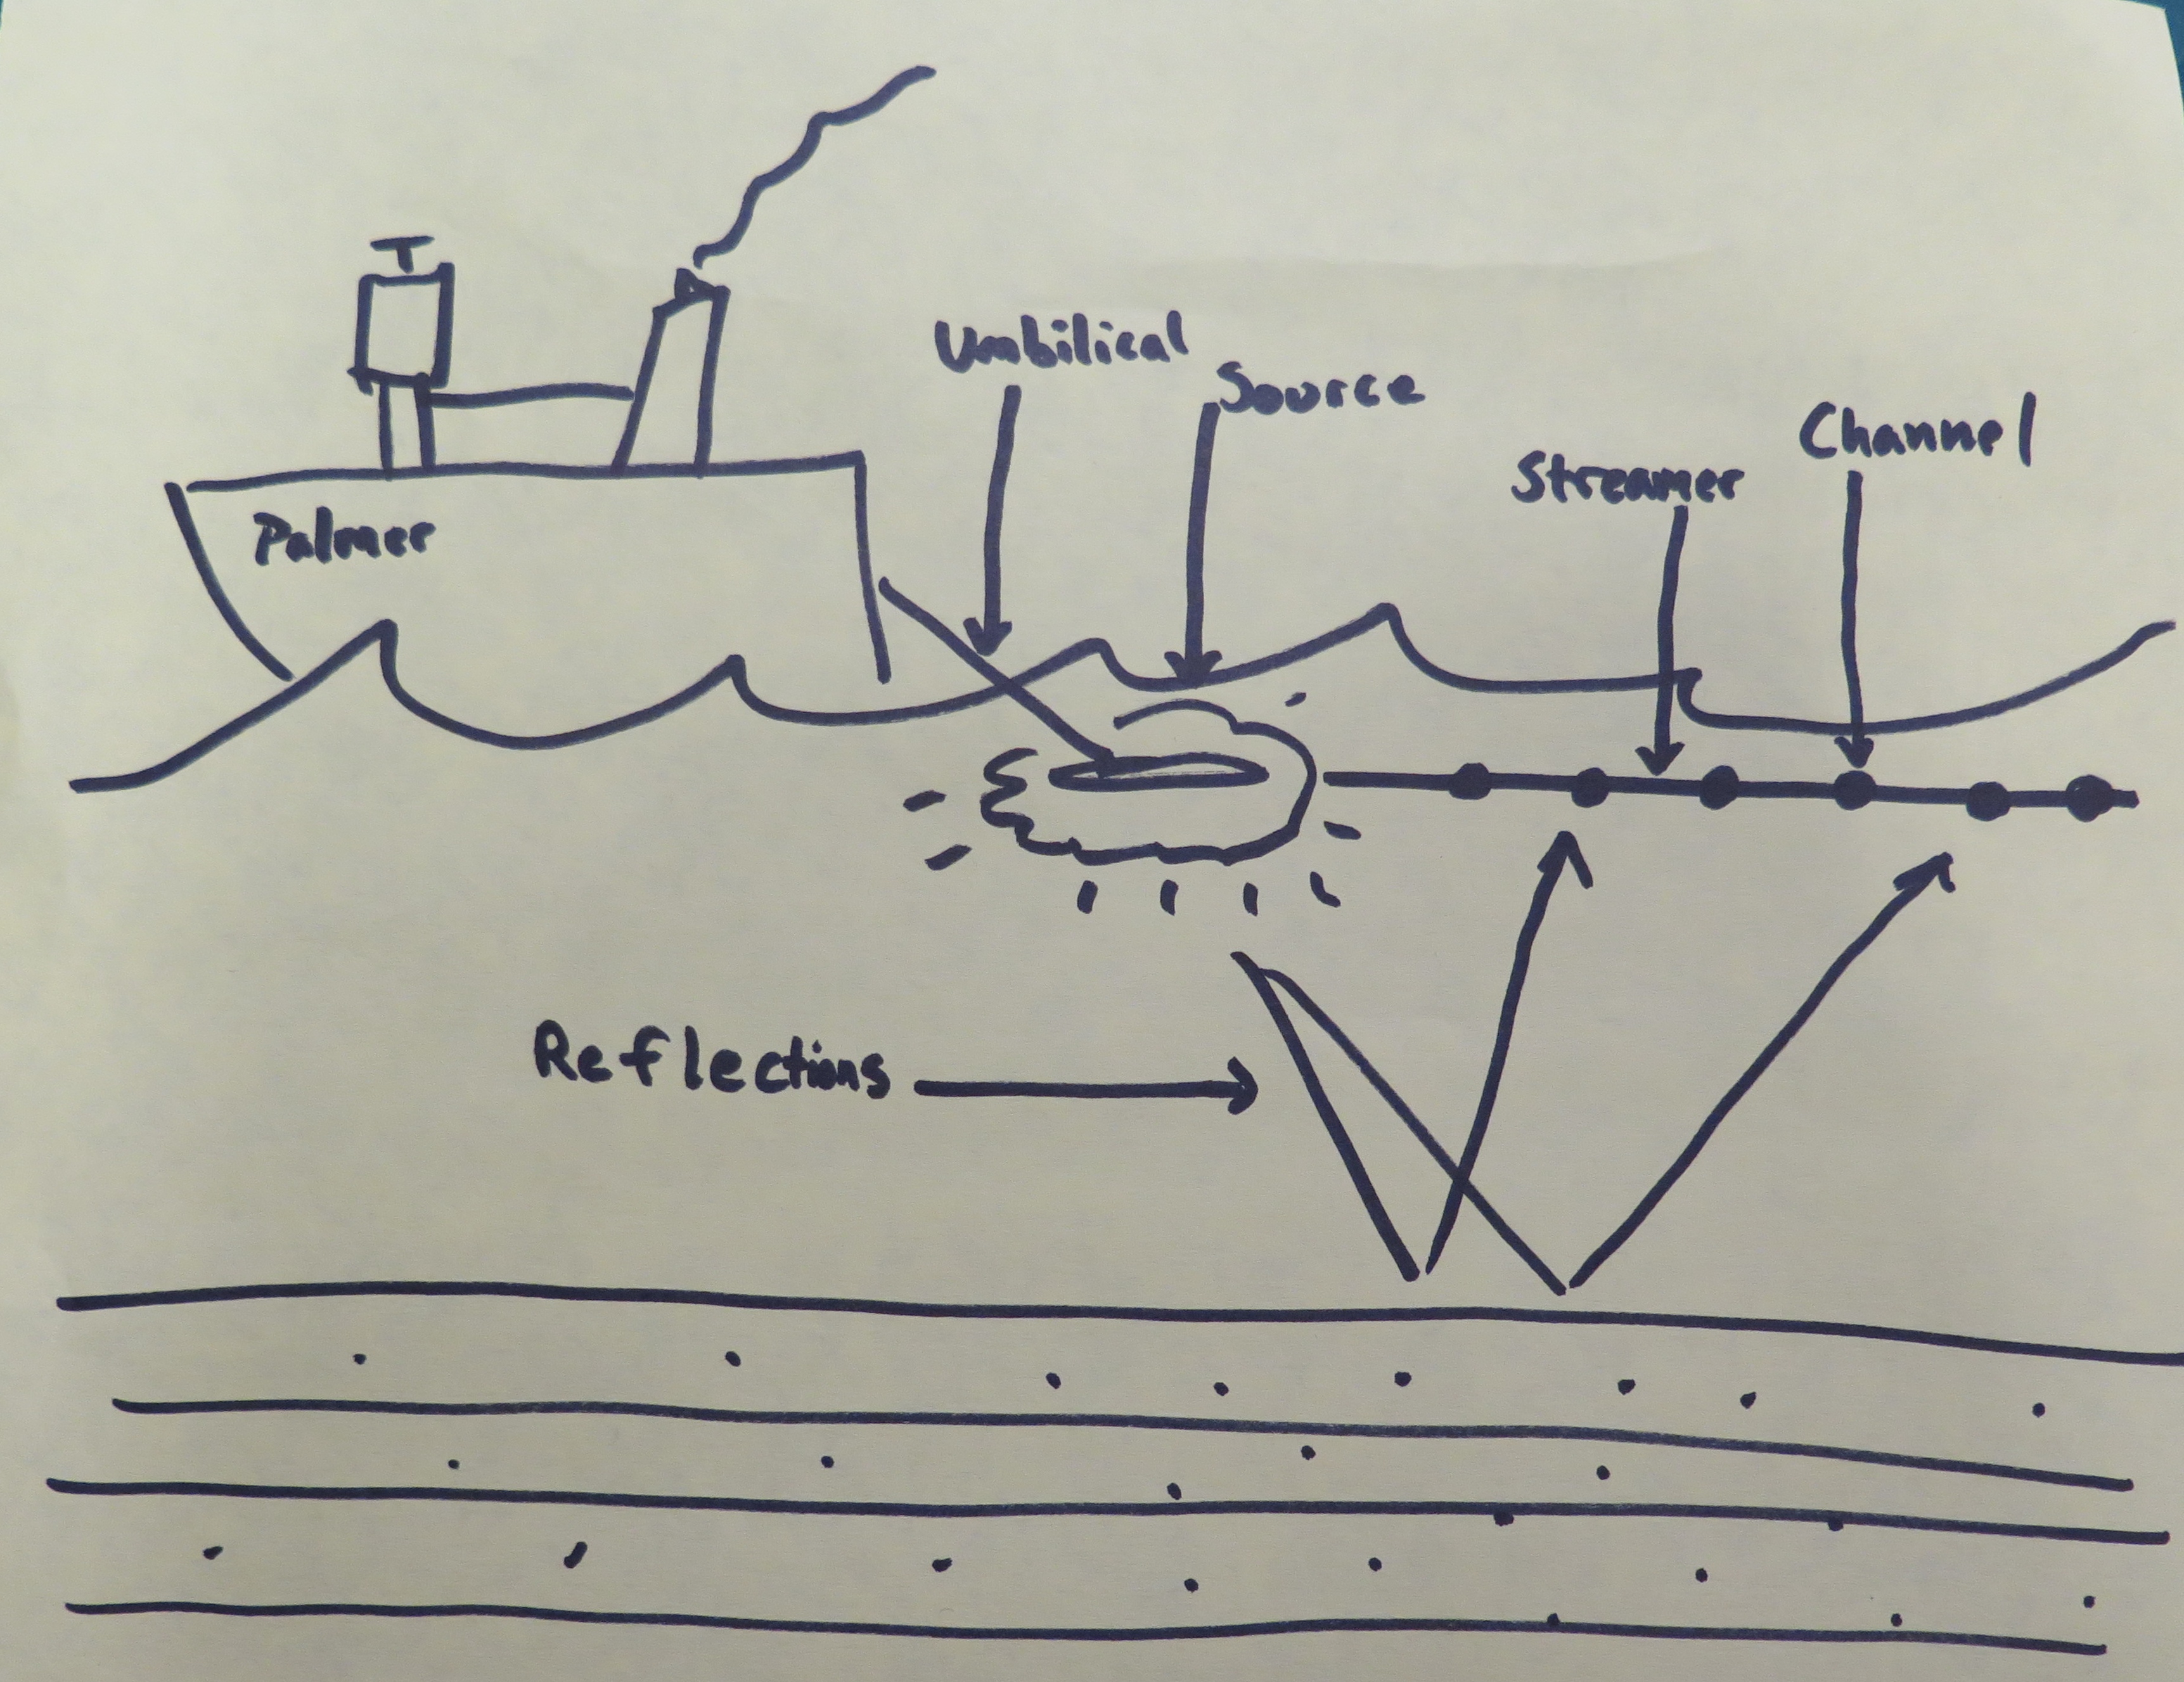 Umbilical
Source
Channel
Streamer
Palmer
Reflections